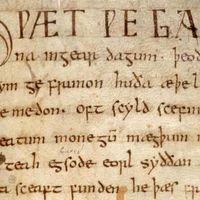 ǷÆT ǷE GA
na ingear dagum. þeod
ym ge frunon huða æþe l
e medon. oft scyld scefin
eatum monegū mægþum m
teah egsode eorl syððan
a sceaft funden he þæs fr